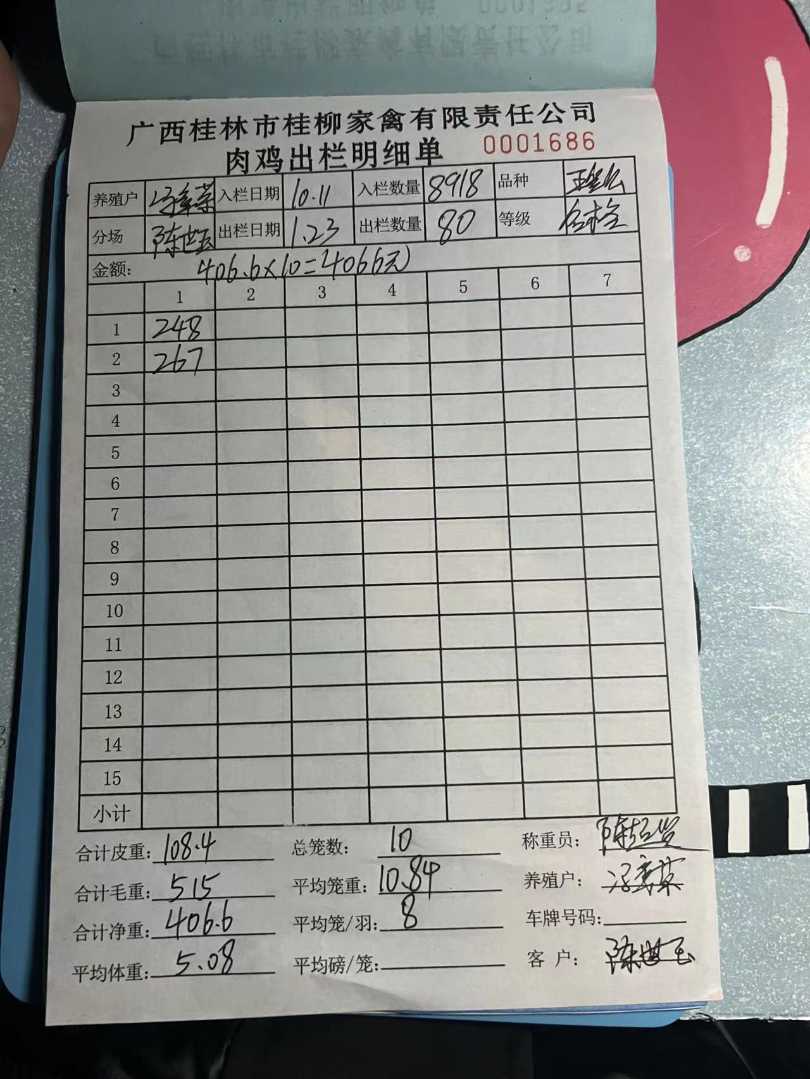 广西桂林市桂柳家禽有限责任公司
肉鸡出栏明细单 0001686
养殖户 入栏日期 10.11 入栏数量 8918 品种
分场 陈世玉 出栏日期 1.23 出栏数量 80 等级
金额: 406.6×10=4066元
1 2 3 4 5 6 7
1 248
2 267
3
4
5
6
7
8
9
10
11
12
13
14
15
小计
合计皮重: 108.4 总笼数: 10 称重员:
合计毛重: 515 平均笼重: 10.84 养殖户:
合计净重: 406.6 平均笼/羽: 8 车牌号码:
平均体重: 5.08 平均磅/笼: 客户: 陈世玉